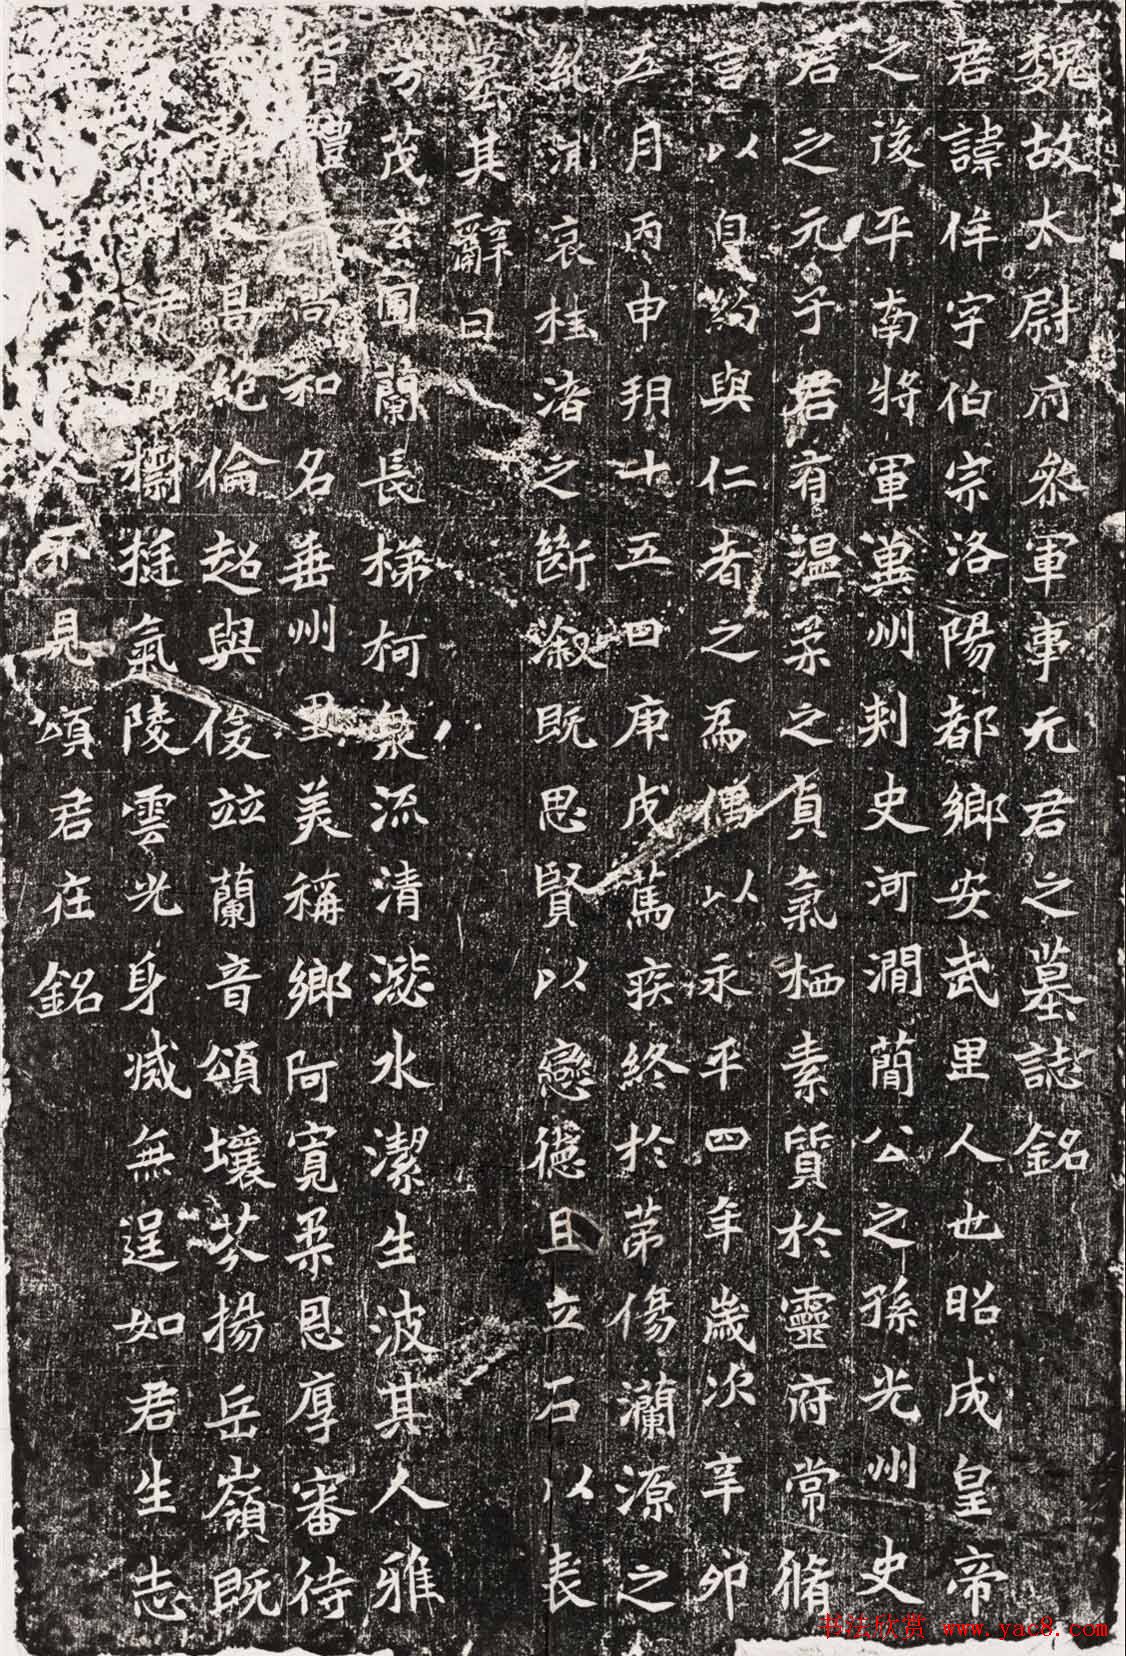 魏故太尉府叅軍事元君之墓誌銘
君諱侔字伯宗洛陽都鄉安武里人也昭成皇帝
之後平南將軍冀州刾史河澗簡公之孫光州史
君之元子君有温柔之貞氣栖素質於靈府常脩
言以自約與仁者之爲儔以永平四年歲次辛卯
五月丙申朔十五四庚戌篤疾終於第傷瀾源之
紀消哀桂渚之斷溆既思賢以戀德且立石以表
墓其辭曰
芳茂玄圃蘭長梯柯泉流清漎水潔生波其人雅
智尚和名垂州里美稱鄉阿寛柔恩厚審待
昌絕倫超與俊竝蘭音頌壤芬揚岳嶺既
挺氣陵雲光身滅無逞如君生志
人不見頌君在銘
书法欣赏 www.yac8.com